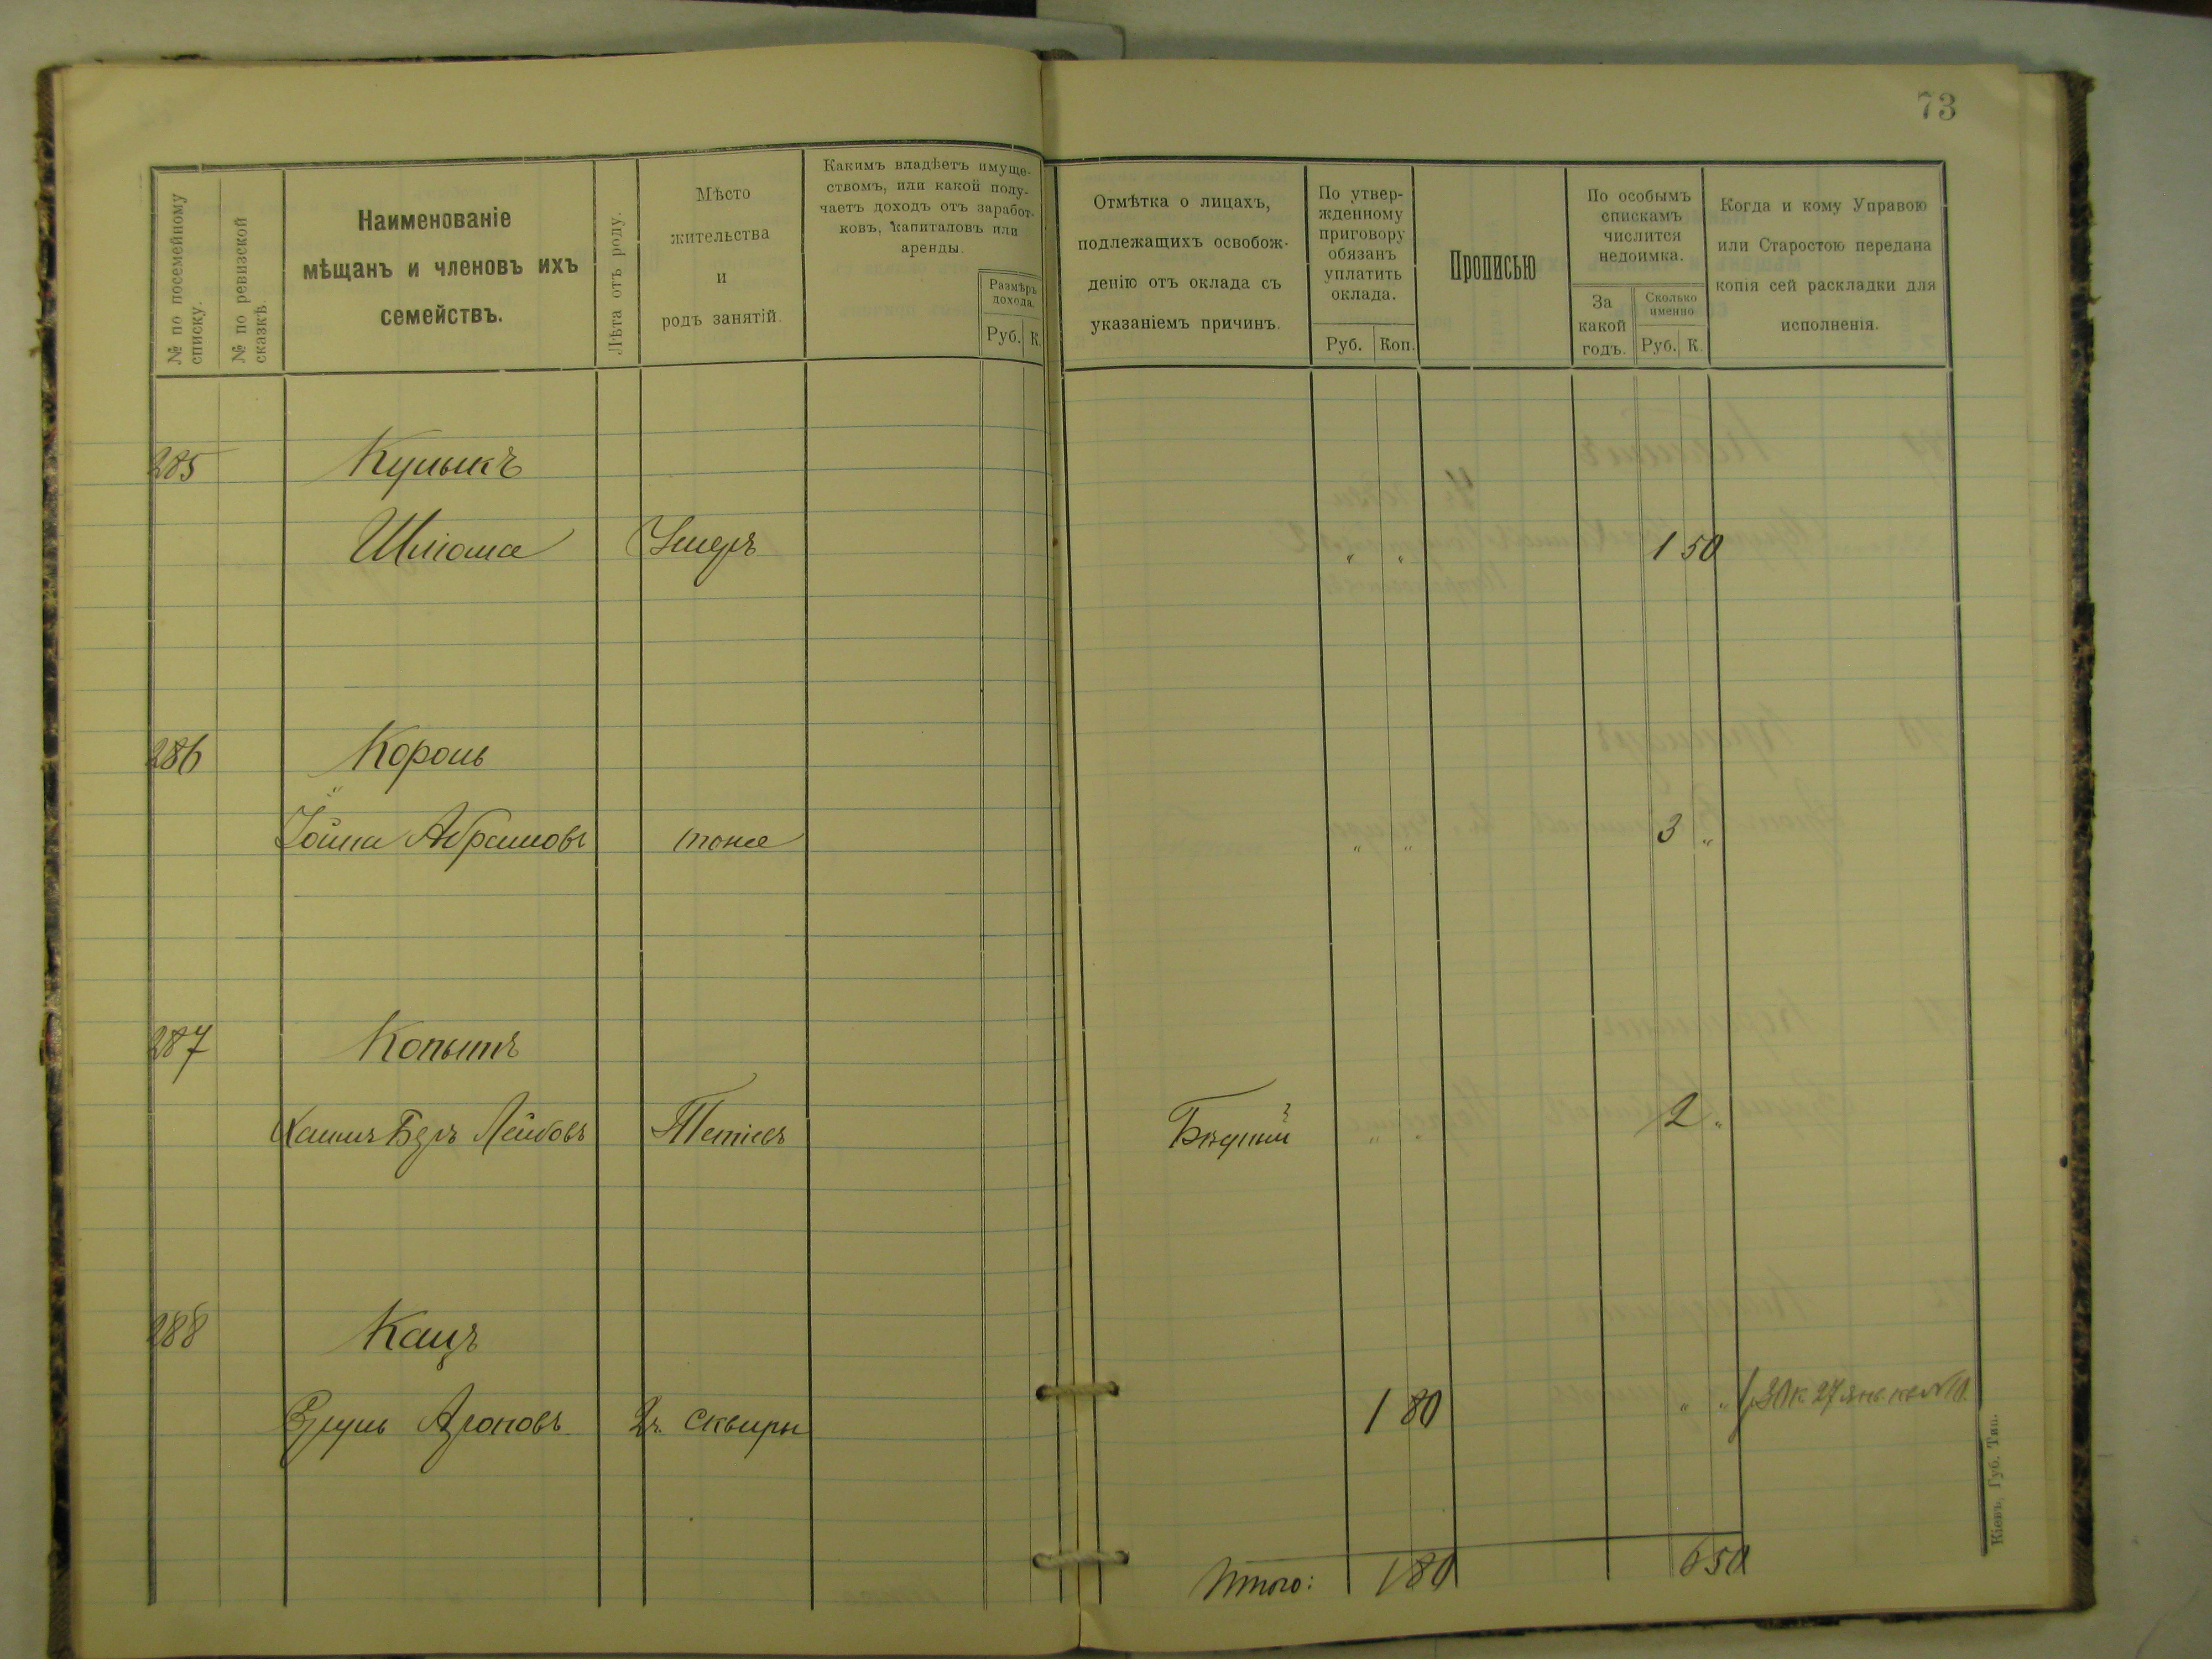 73
№ по посемейному списку.
№ по ревизской сказкѣ.
Наименованіе
мѣщанъ и членовъ ихъ
семействъ.
Лѣта отъ роду.
Мѣсто
жительства
и
родъ занятій.
Какимъ владѣетъ имуще-
ствомъ, или какой полу-
чаетъ доходъ отъ заработ-
ковъ, капиталовъ или
аренды.
Размѣръ
дохода.
Руб. К.
Отмѣтка о лицахъ,
подлежащихъ освобож-
денію отъ оклада съ
указаніемъ причинъ.
По утвер-
жденному
приговору
обязанъ
уплатить
оклада.
Руб. Коп.
Прописью
По особымъ
спискамъ
числится
недоимка.
За
какой
годъ.
Сколько
именно
Руб. К.
Когда и кому Управою
или Старостою передана
копія сей раскладки для
исполненія.
285 Кулыкъ
Шліома Умеръ " " 1 50
286 Король
Іойна Абрамовъ тоже " " 3 "
287 Копытъ
Хаимъ Беръ Лейбовъ Тетіевъ Бѣдный " " 2 "
288 Кацъ
Сруль Ароновъ г. Сквиры 1 80 " "
Итого: 1 80 6 50
Кіевъ, Губ. Тип.